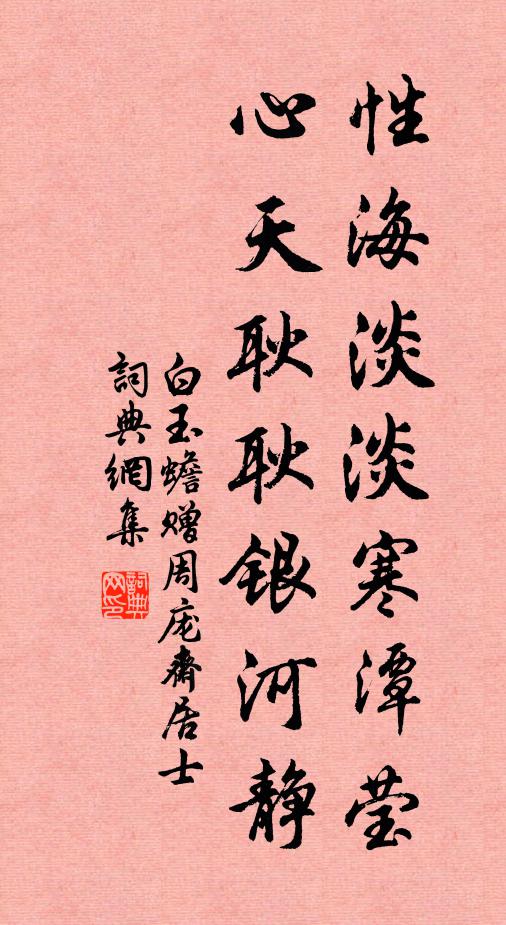 性海淡淡寒潭莹
心天耿耿银河静
白玉蟾赠周庞斋居士
詞典網集
詞典网印